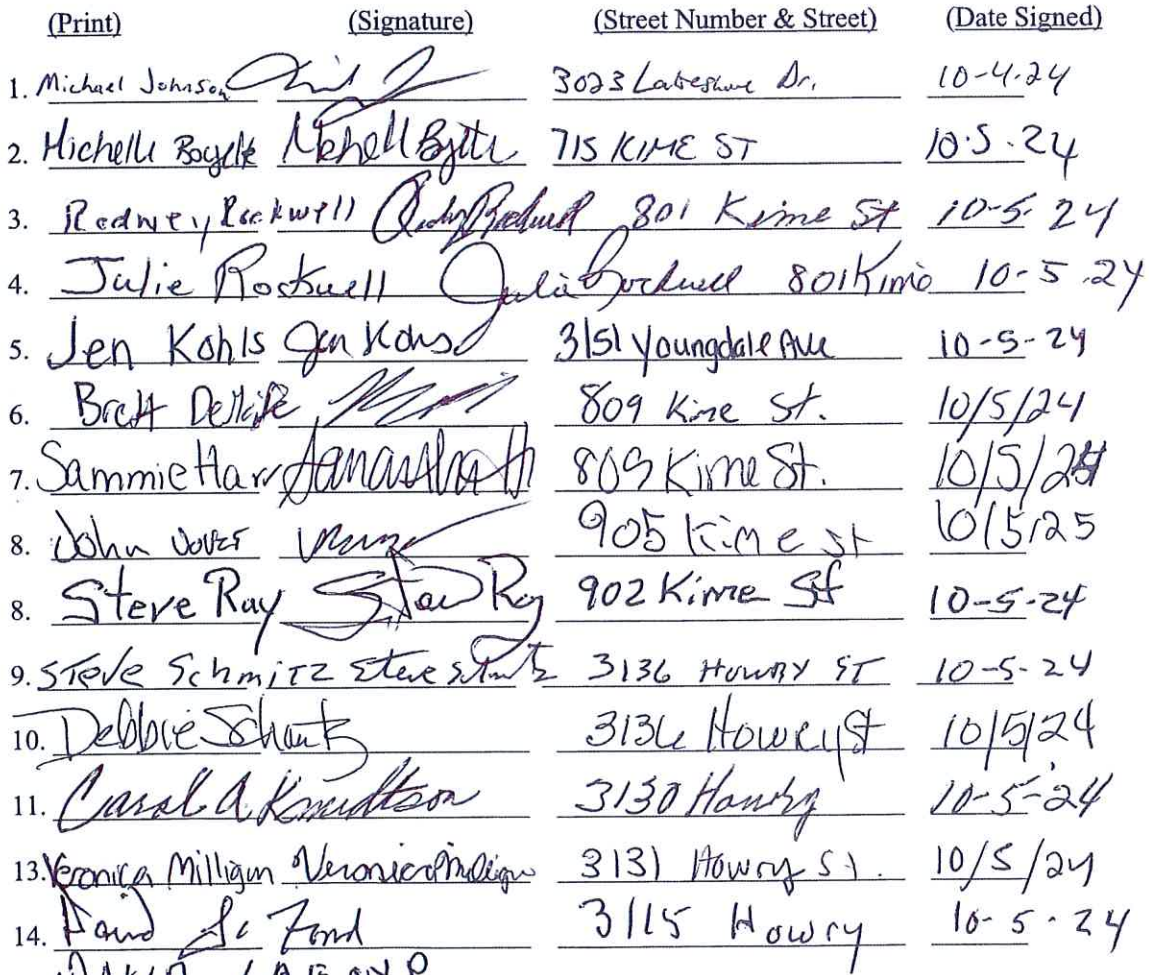 (Print) (Signature) (Street Number & Street) (Date Signed)
1. Michael Johnson 3023 Lakeshore Dr. 10-4-24
2. Michelle 715 KIME ST 10-5-24
3. Rodney Rockwell 801 Kime St 10-5-24
4. Julie Rockwell Julie Rockwell 801 Kime 10-5-24
5. Jen Kohls Jen Kohls 3151 Youngdale Ave 10-5-24
6. Brett 809 Kime St. 10/5/24
7. Sammie Harr 809 Kime St. 10/5/24
8. John 905 Kime st 10/5/25
8. Steve Ray Steve Ray 902 Kime St 10-5-24
9. Steve Schmitz Steve 3136 HOWRY ST 10-5-24
10. Debbie 3136 Howry St 10/5/24
11. Carol A Knudtson 3130 Howry 10-5-24
13. Veronica Milligan Veronica Milligan 3131 Howry St. 10/5/24
14. David 3115 Howry 10-5-24